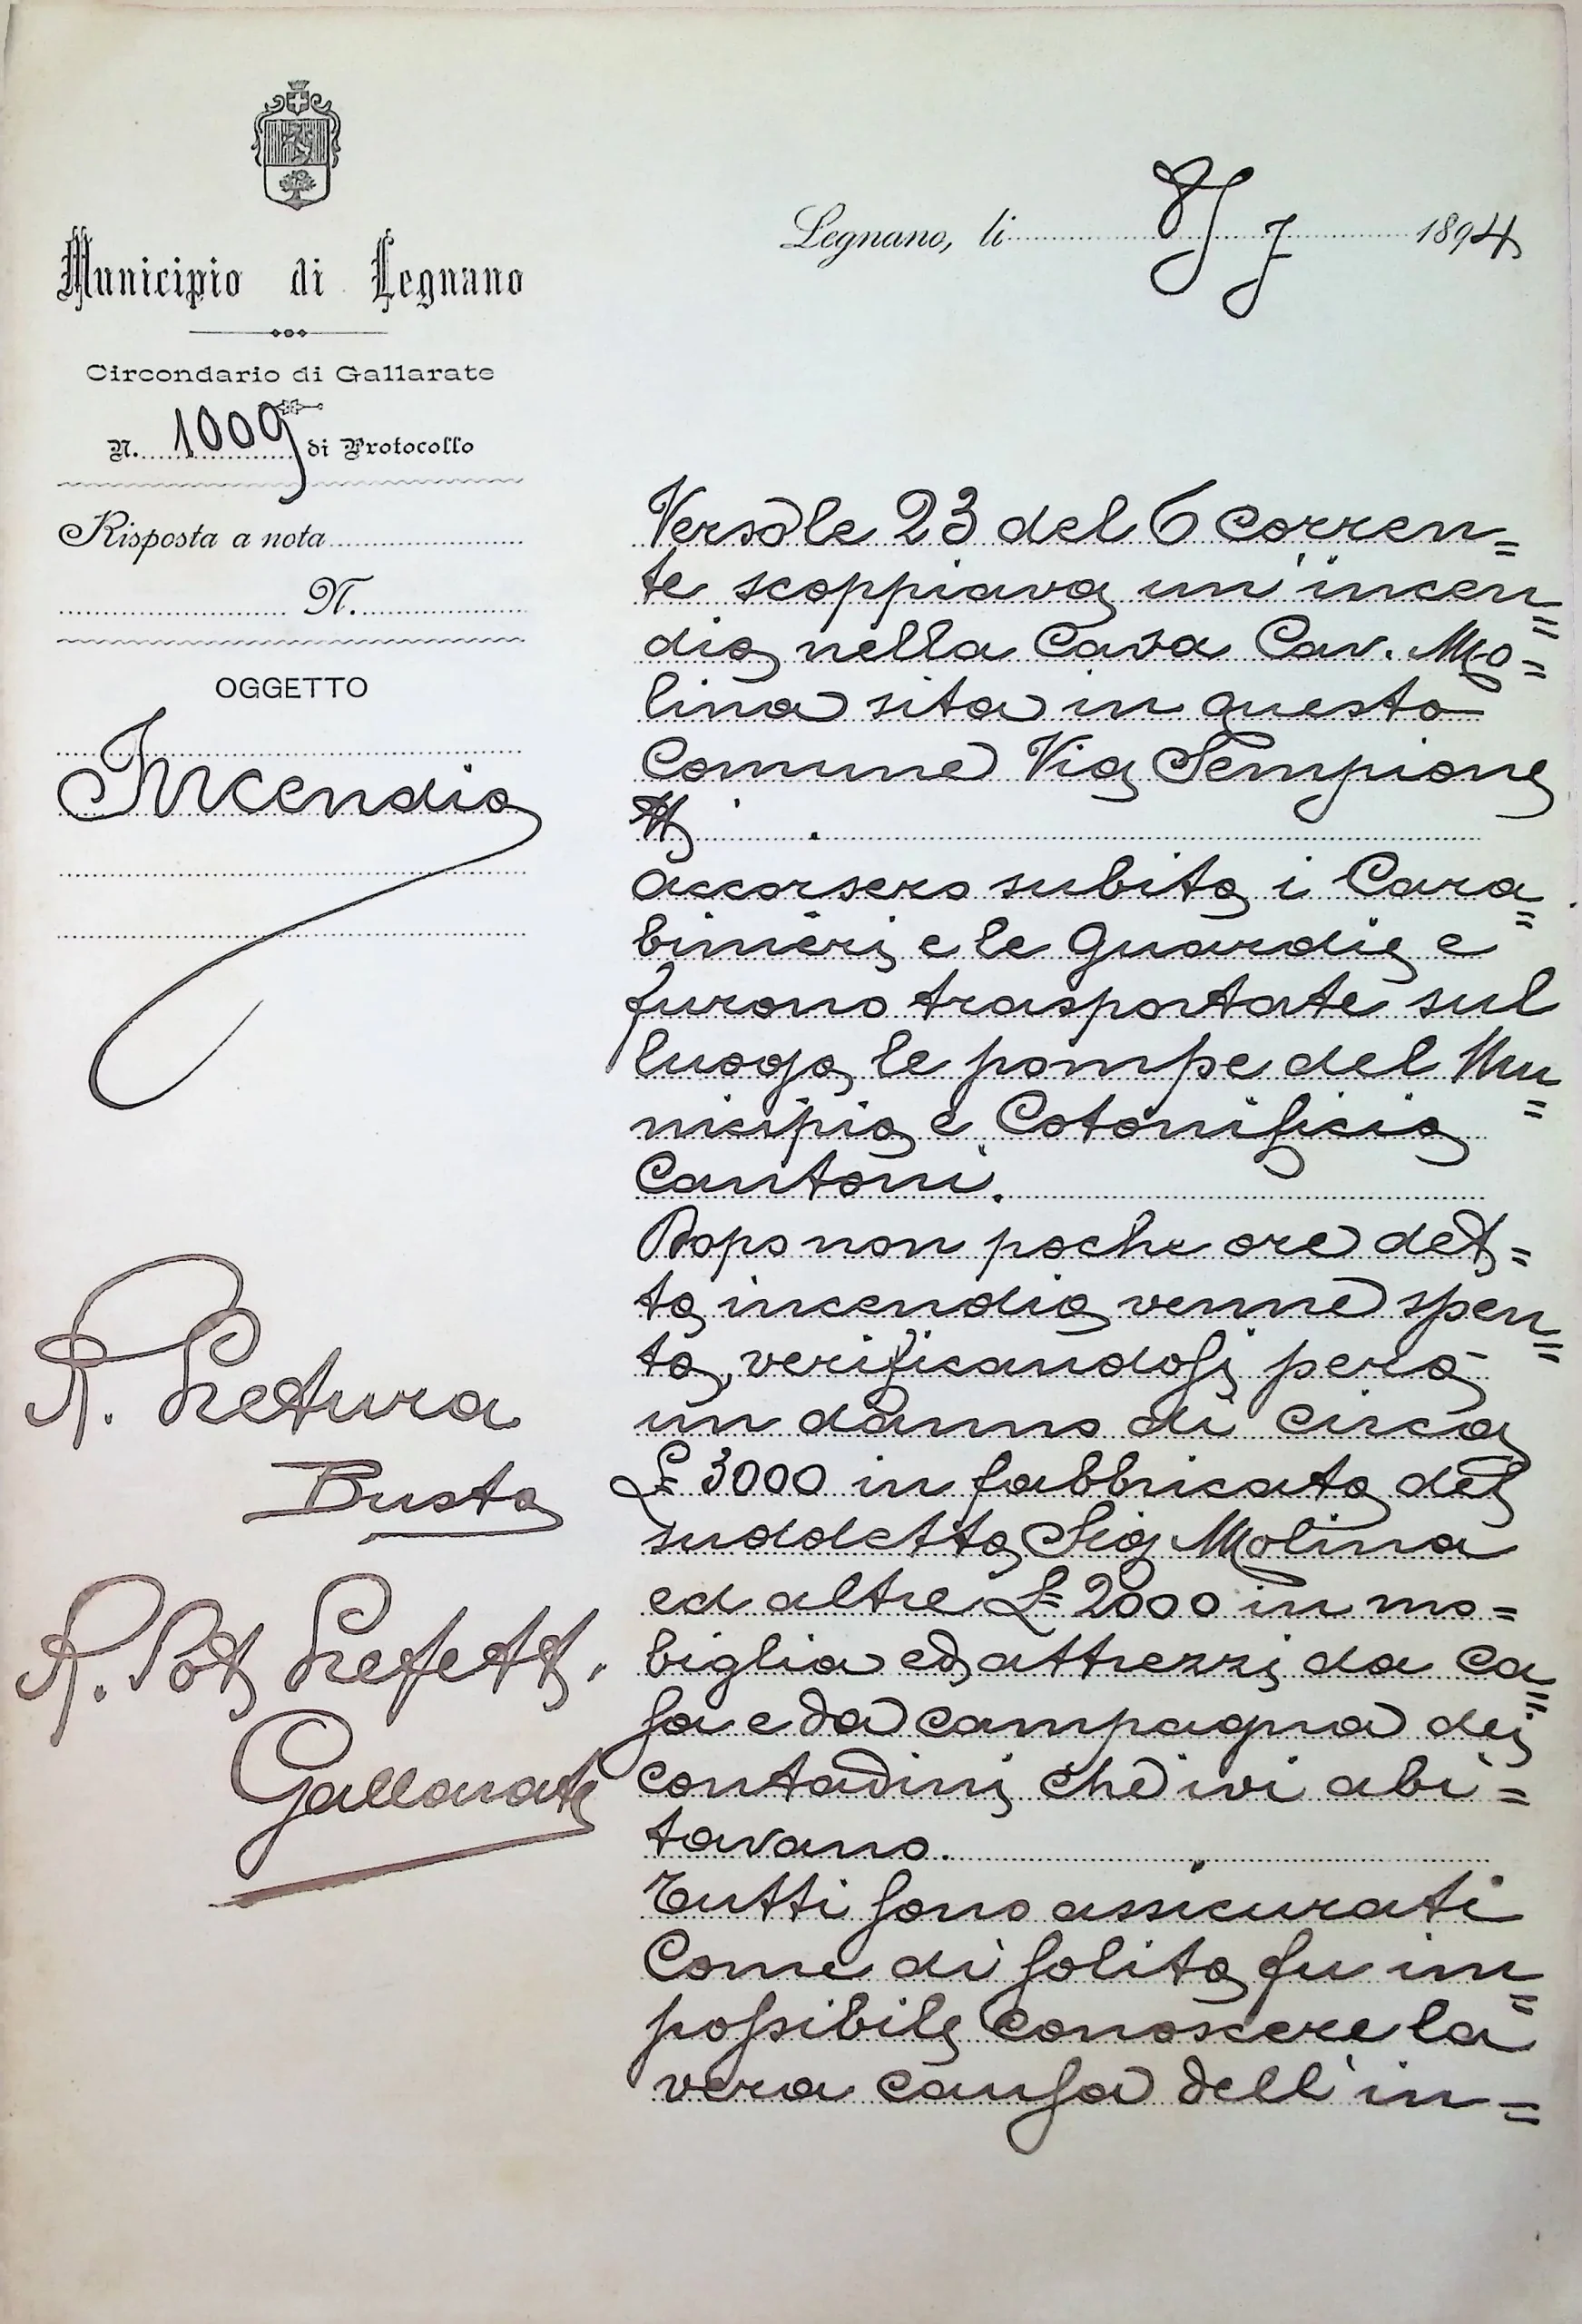 Municipio di Legnano
Circondario di Gallarate
N. 1009 di Protocollo
Risposta a nota
N.
OGGETTO
Incendio
R. Pretura
Busto
R. Sot Prefett.
Gallarate
Legnano, li 8/7 1894
Verso le 23 del 6 corren=
te scoppiava un'incen=
dio nella Casa Cav. Mo=
lina sita in questo
Comune Via Sempione
accorsero subito i Cara=
binieri e le Guardie e
furono trasportate sul
luogo le pompe del Mu=
nicipio e Cotonificio
Cantoni.
Dopo non poche ore det=
to incendio venne spen=
to, verificandosi però
un danno di circa
£ 3000 in fabbricato del
suddetto Sig Molina
ed altre £ 2000 in mo=
biglia ed attrezzi da ca=
sa e da campagna dei
contadini che ivi abi=
tavano.
Tutti sono assicurati
Come di solito fu im=
possibile conoscere la
vera causa dell'in=